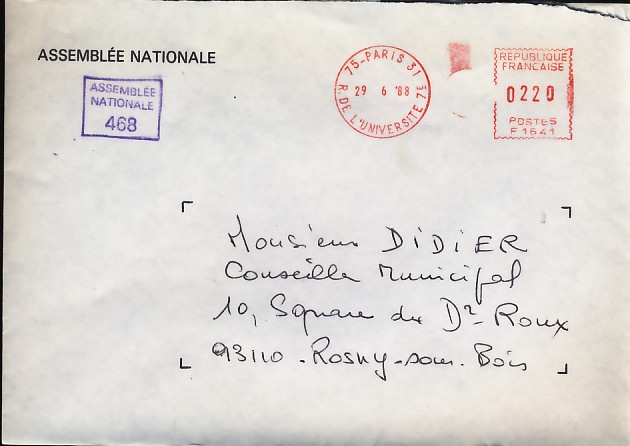 ASSEMBLÉE NATIONALE
ASSEMBLÉE
NATIONALE
468
75-PARIS 31
29 6 '88
R. DE L'UNIVERSITE 7E
REPUBLIQUE
FRANCAISE
0220
POSTES
F 1641
Monsieur DIDIER
Conseiller Municipal
10, Square du Dr Roux
93110 - Rosny-sous-Bois